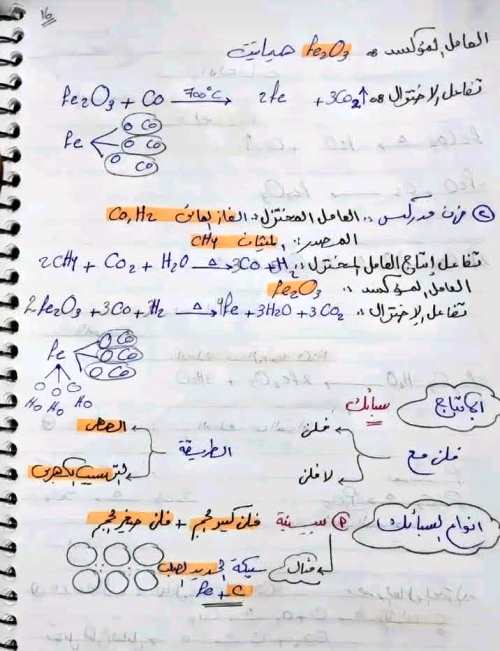 16
العامل المؤكسد Fe₂O₃ هيماتيت
تفاعل الاختزال Fe₂O₃ + Co 700°C→ 2fe + 3CO₂↑
Fe
O Co
O Co
O Co
② فرن مدركس :: العامل المختزل: الغاز المائى Co, H₂
المصدر :: الميثان CH4
تفاعل إنتاج العامل المختزل :: 2CH4 + CO₂ + H₂O Δ→ 3Co + H₂
العامل المؤكسد :: Fe₂O₃
تفاعل الاختزال :: 2Fe₂O₃ + 3Co + 3H₂ Δ→ 4Fe + 3H₂O + 3CO₂
Fe
O Co
O Co
O Co
O O O
Ho Ho Ho
الانتاج سبائك
فلز مع
فلز
لا فلز
الطريقة
الصهر
الترسيب الكهربى
انواع السبائك
P بينية فلز كبير حجم + فلز صغير حجم
مثال سبيكة الحديد الصلب
Fe + C